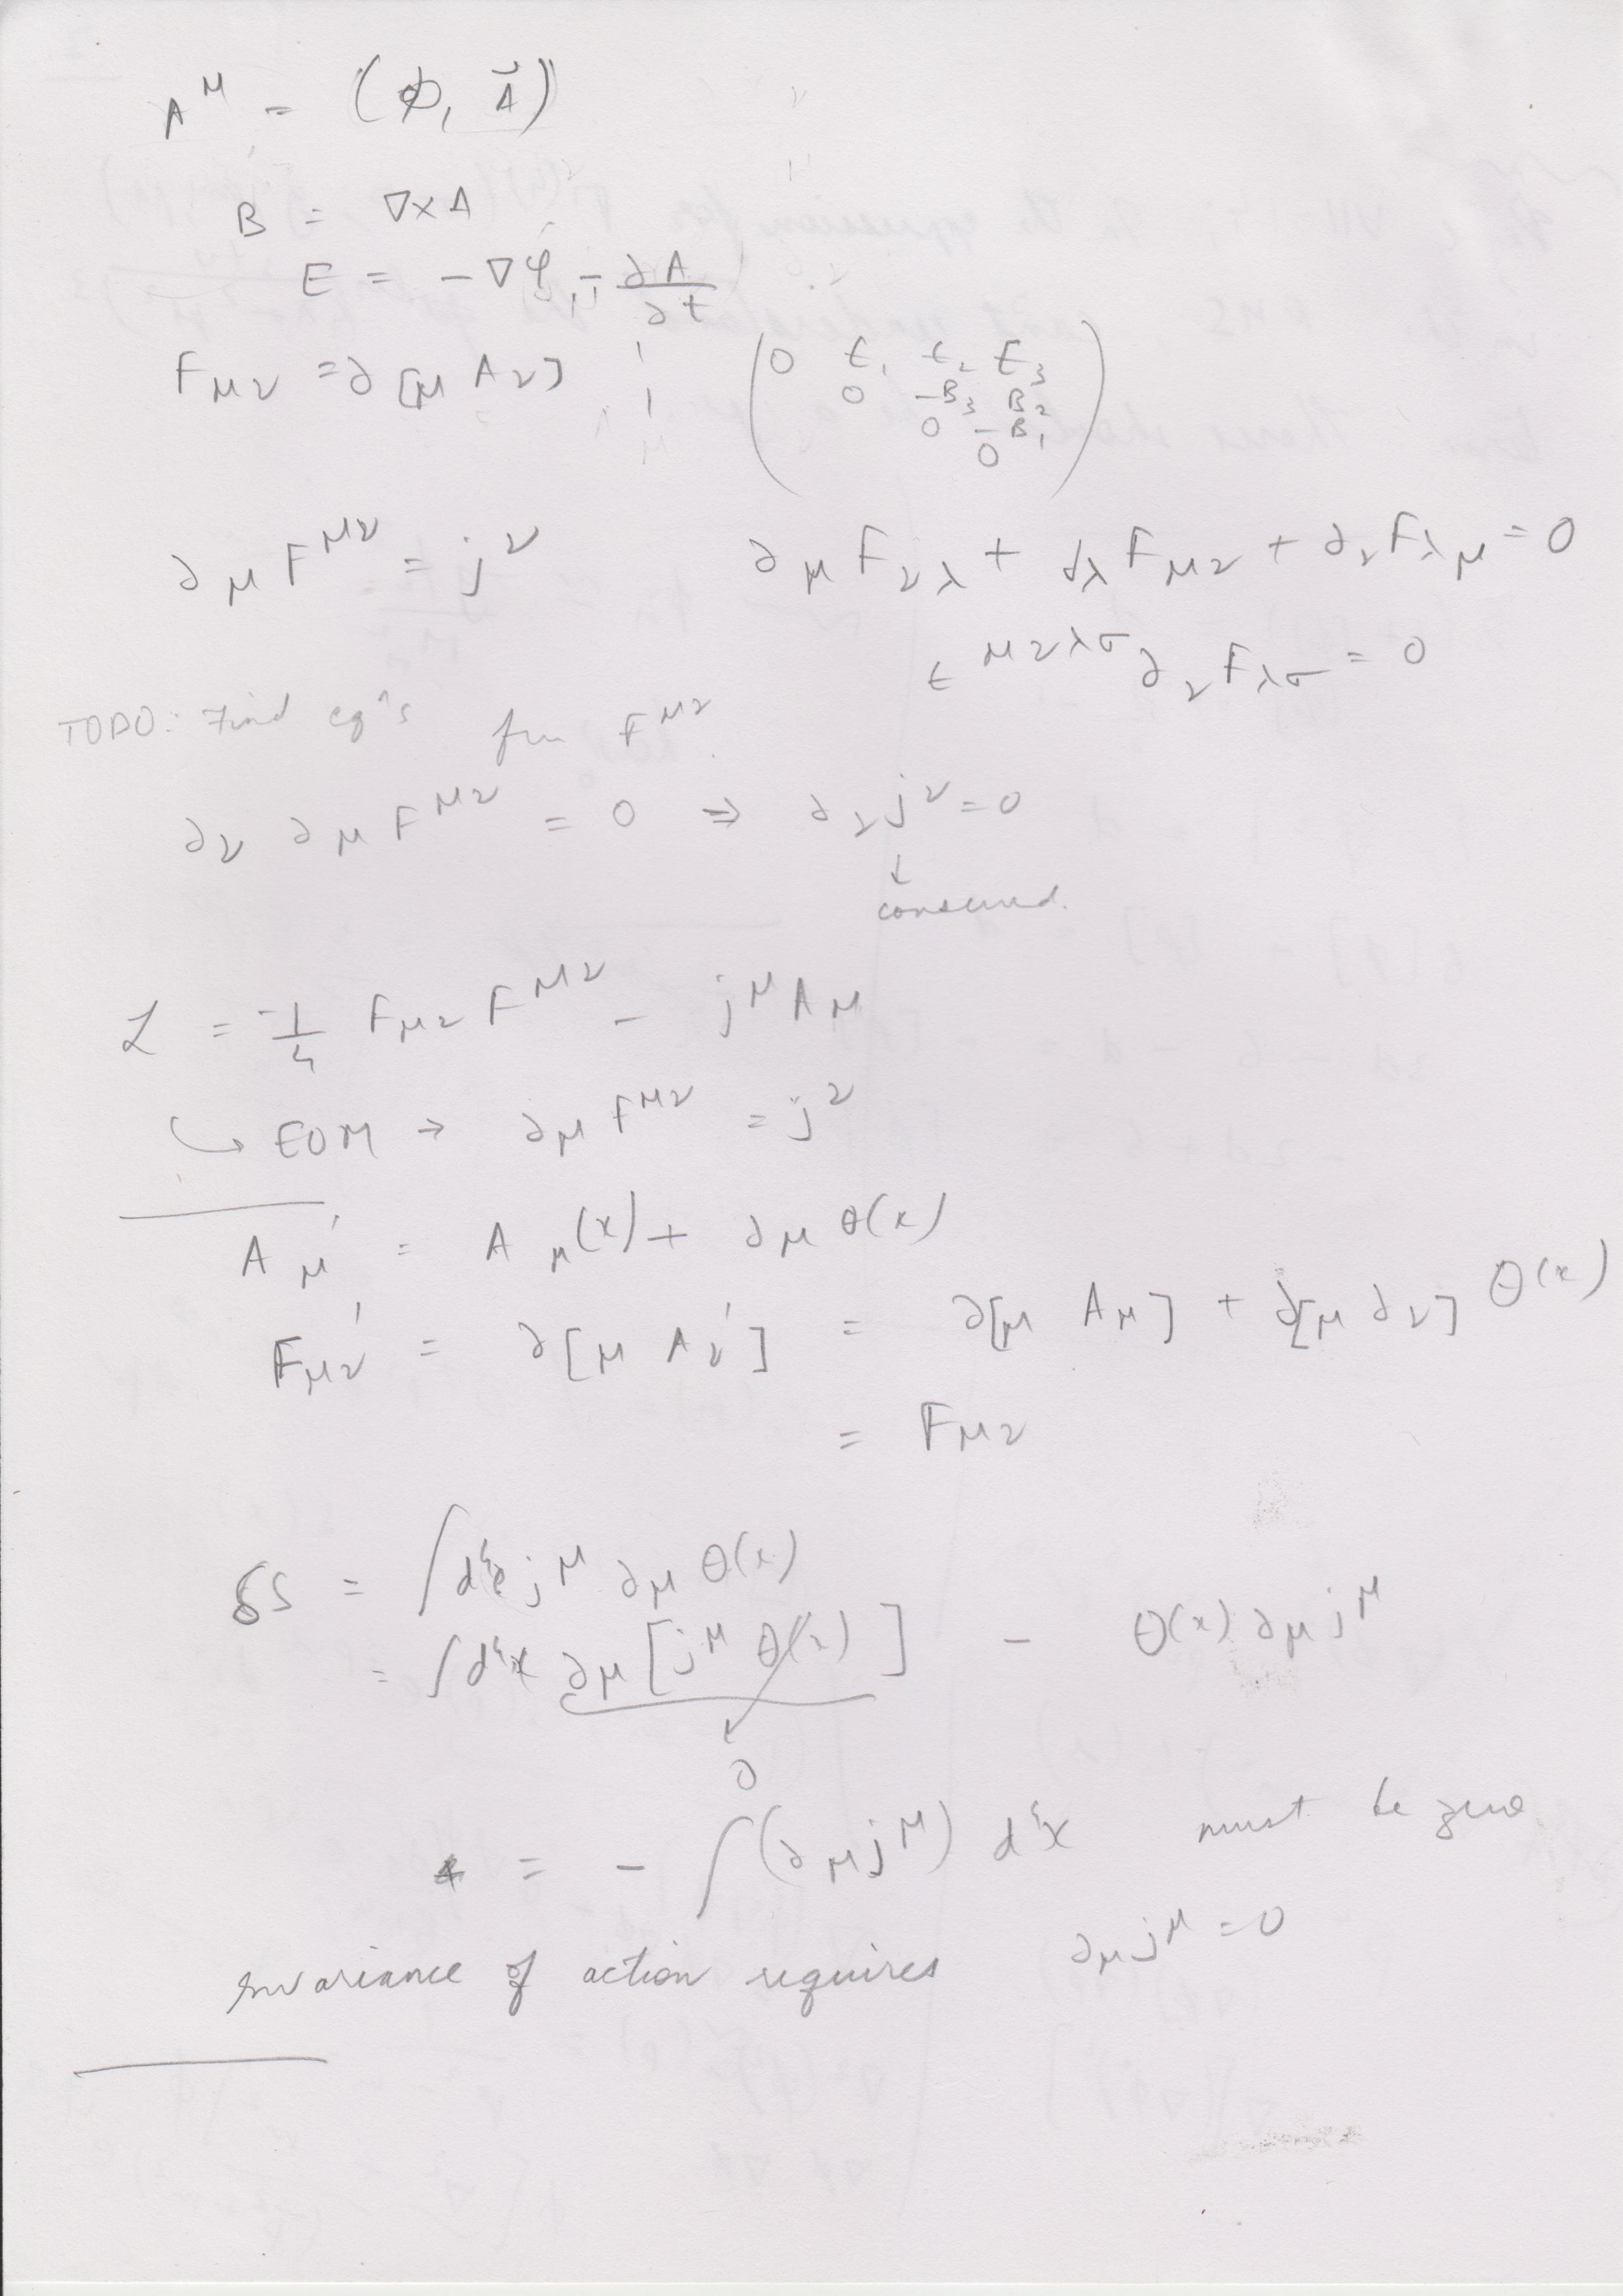 A^μ = (ϕ, \vec{A})
B = ∇×A
E = −∇φ, − ∂A/∂t
F_μν = ∂[μ A ν]
0 E₁ E₂ E₃
0 −B₃ B₂
0 −B₁
0
∂_μ F^μν = j^ν ∂_μ F_νλ + ∂_λ F_μν + ∂_ν F_λμ = 0
ϵ^μνλσ ∂_ν F_λσ = 0
TODO: Find eqⁿs for F^μν.
∂_ν ∂_μ F^μν = 0 ⇒ ∂_ν j^ν = 0
↓
conserved.
ℒ = −1/4 F_μν F^μν − j^μ A_μ
↪ EOM → ∂_μ F^μν = j^ν
A_μ' = A_μ(x) + ∂_μ θ(x)
F_μν' = ∂[μ A_ν'] = ∂[μ A_μ] + ∂[μ ∂ν] θ(x)
= F_μν
δS = ∫d⁴x j^μ ∂_μ θ(x)
= ∫d⁴x ∂_μ [j^μ θ(x)] − θ(x) ∂_μ j^μ
0
= − ∫(∂_μ j^μ) d⁴x must be zero
Invariance of action requires ∂_μ j^μ = 0